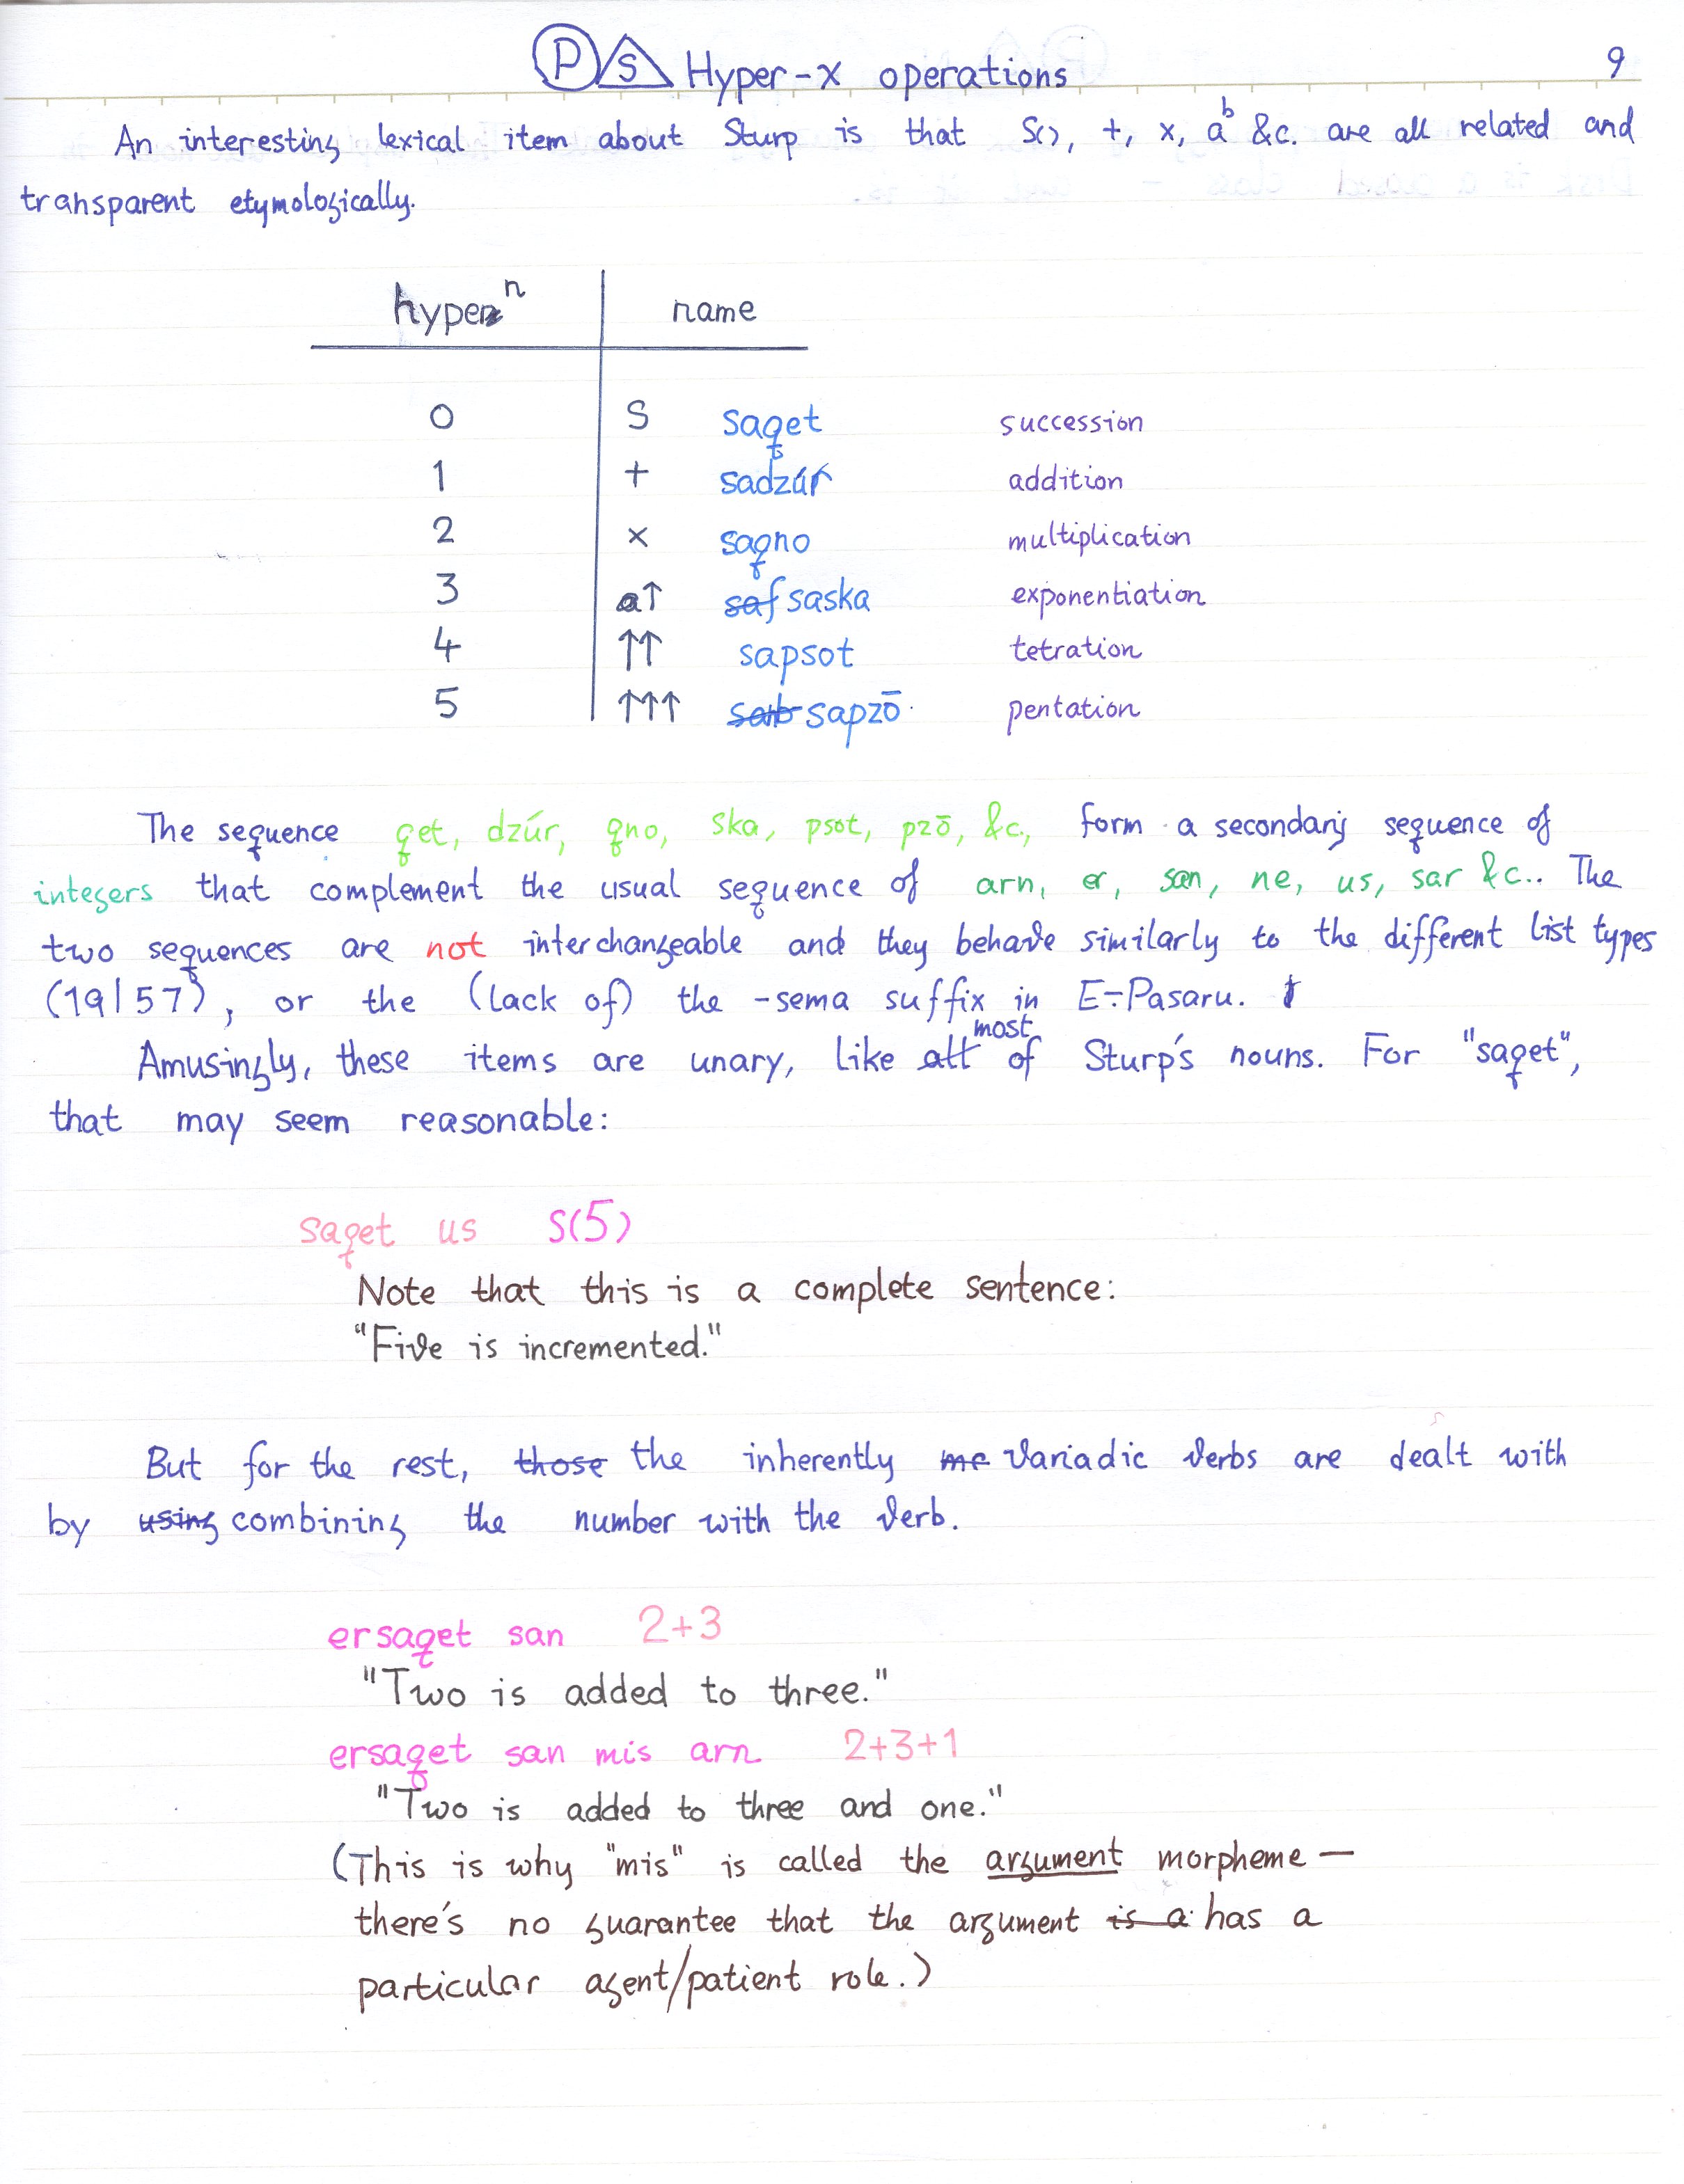 P S Hyper-x operations 9
An interesting lexical item about Sturp is that S(), +, x, a^b &c. are all related and
transparent etymologically.
hyper n name
0 S saq̃et succession
1 + sadzúr addition
2 × saq̃no multiplication
3 a↑ saf saska exponentiation
4 ↑↑ sapsot tetration
5 ↑↑↑ sarb sapzō pentation
The sequence q̃et, dzúr, q̃no, ska, psot, pzō, &c, form a secondary sequence of
integers that complement the usual sequence of arn, er, san, ne, us, sar &c.. The
two sequences are not interchangeable and they behave similarly to the different list types
(19|57), or the (lack of) the -sema suffix in E-Pasaru.
Amusingly, these items are unary, like all most of Sturp's nouns. For "saq̃et",
that may seem reasonable:
saq̃et us S(5)
Note that this is a complete sentence:
"Five is incremented."
But for the rest, those the inherently me variadic verbs are dealt with
by using combining the number with the verb.
ersaq̃et san 2+3
"Two is added to three."
ersaq̃et san mis arn 2+3+1
"Two is added to three and one."
(This is why "mis" is called the argument morpheme —
there's no guarantee that the argument is a has a
particular agent/patient role.)